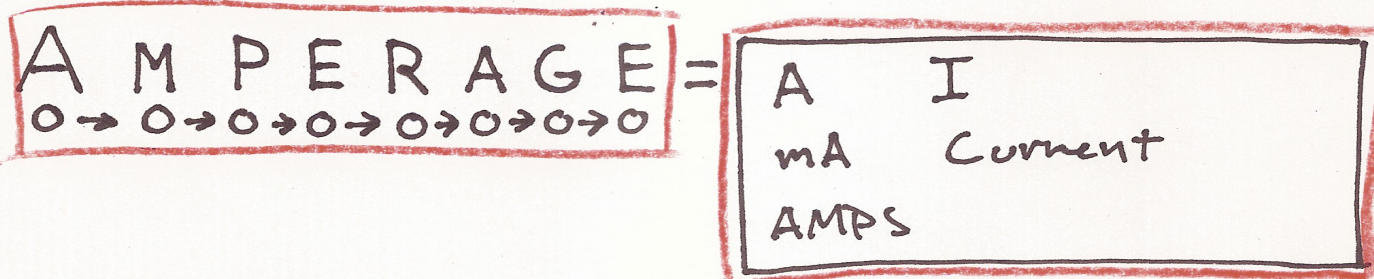 AMPERAGE =
O → O → O → O → O → O → O → O
A I
mA Current
AMPS